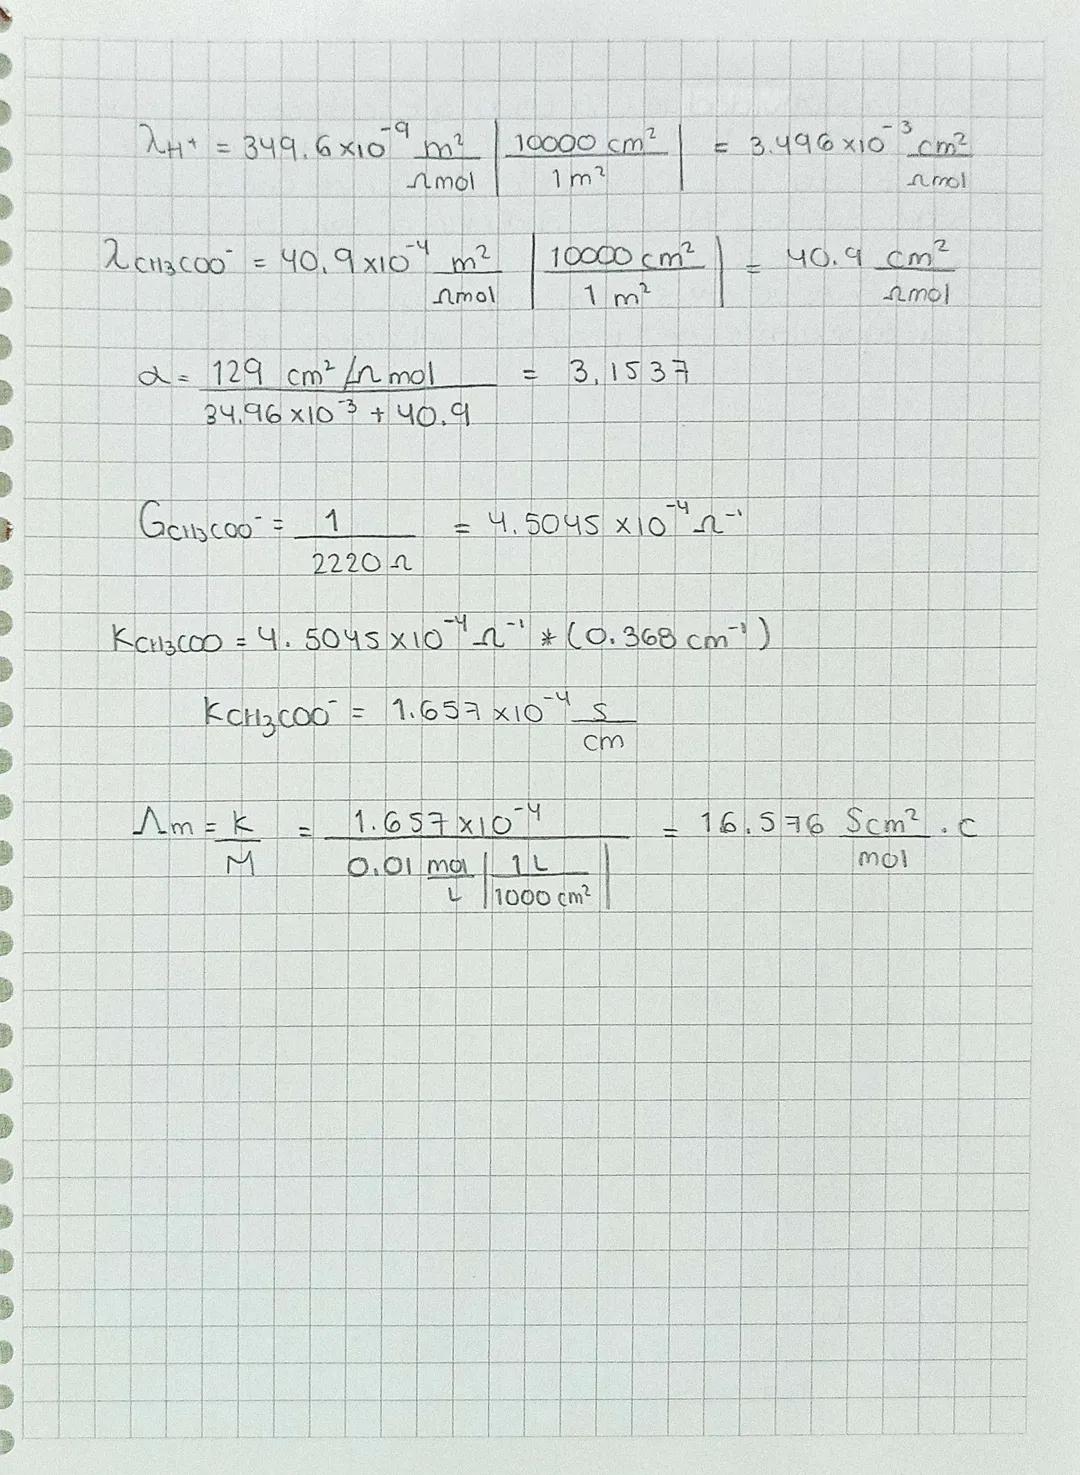 λH+ = 349.6x10⁻⁹ m²/Ωmol | 10000 cm²/1 m² | = 3.496 x10⁻³ cm²/Ωmol
λCH3COO⁻ = 40.9x10⁻⁴ m²/Ωmol | 10000 cm²/1 m² | = 40.9 cm²/Ωmol
α = 129 cm²/Ω mol / 34.96 x10⁻³ + 40.9 = 3.1537
GCH3COO⁻ = 1/2220 Ω = 4.5045 x10⁻⁴ Ω⁻¹
KCH3COO = 4.5045 x10⁻⁴ Ω⁻¹ * (0.368 cm⁻¹)
KCH3COO⁻ = 1.657 x10⁻⁴ S/cm
Λm = K/M = 1.657 x10⁻⁴ / 0.01 mol/L | 1L/1000 cm² | = 16.576 Scm²/mol . c